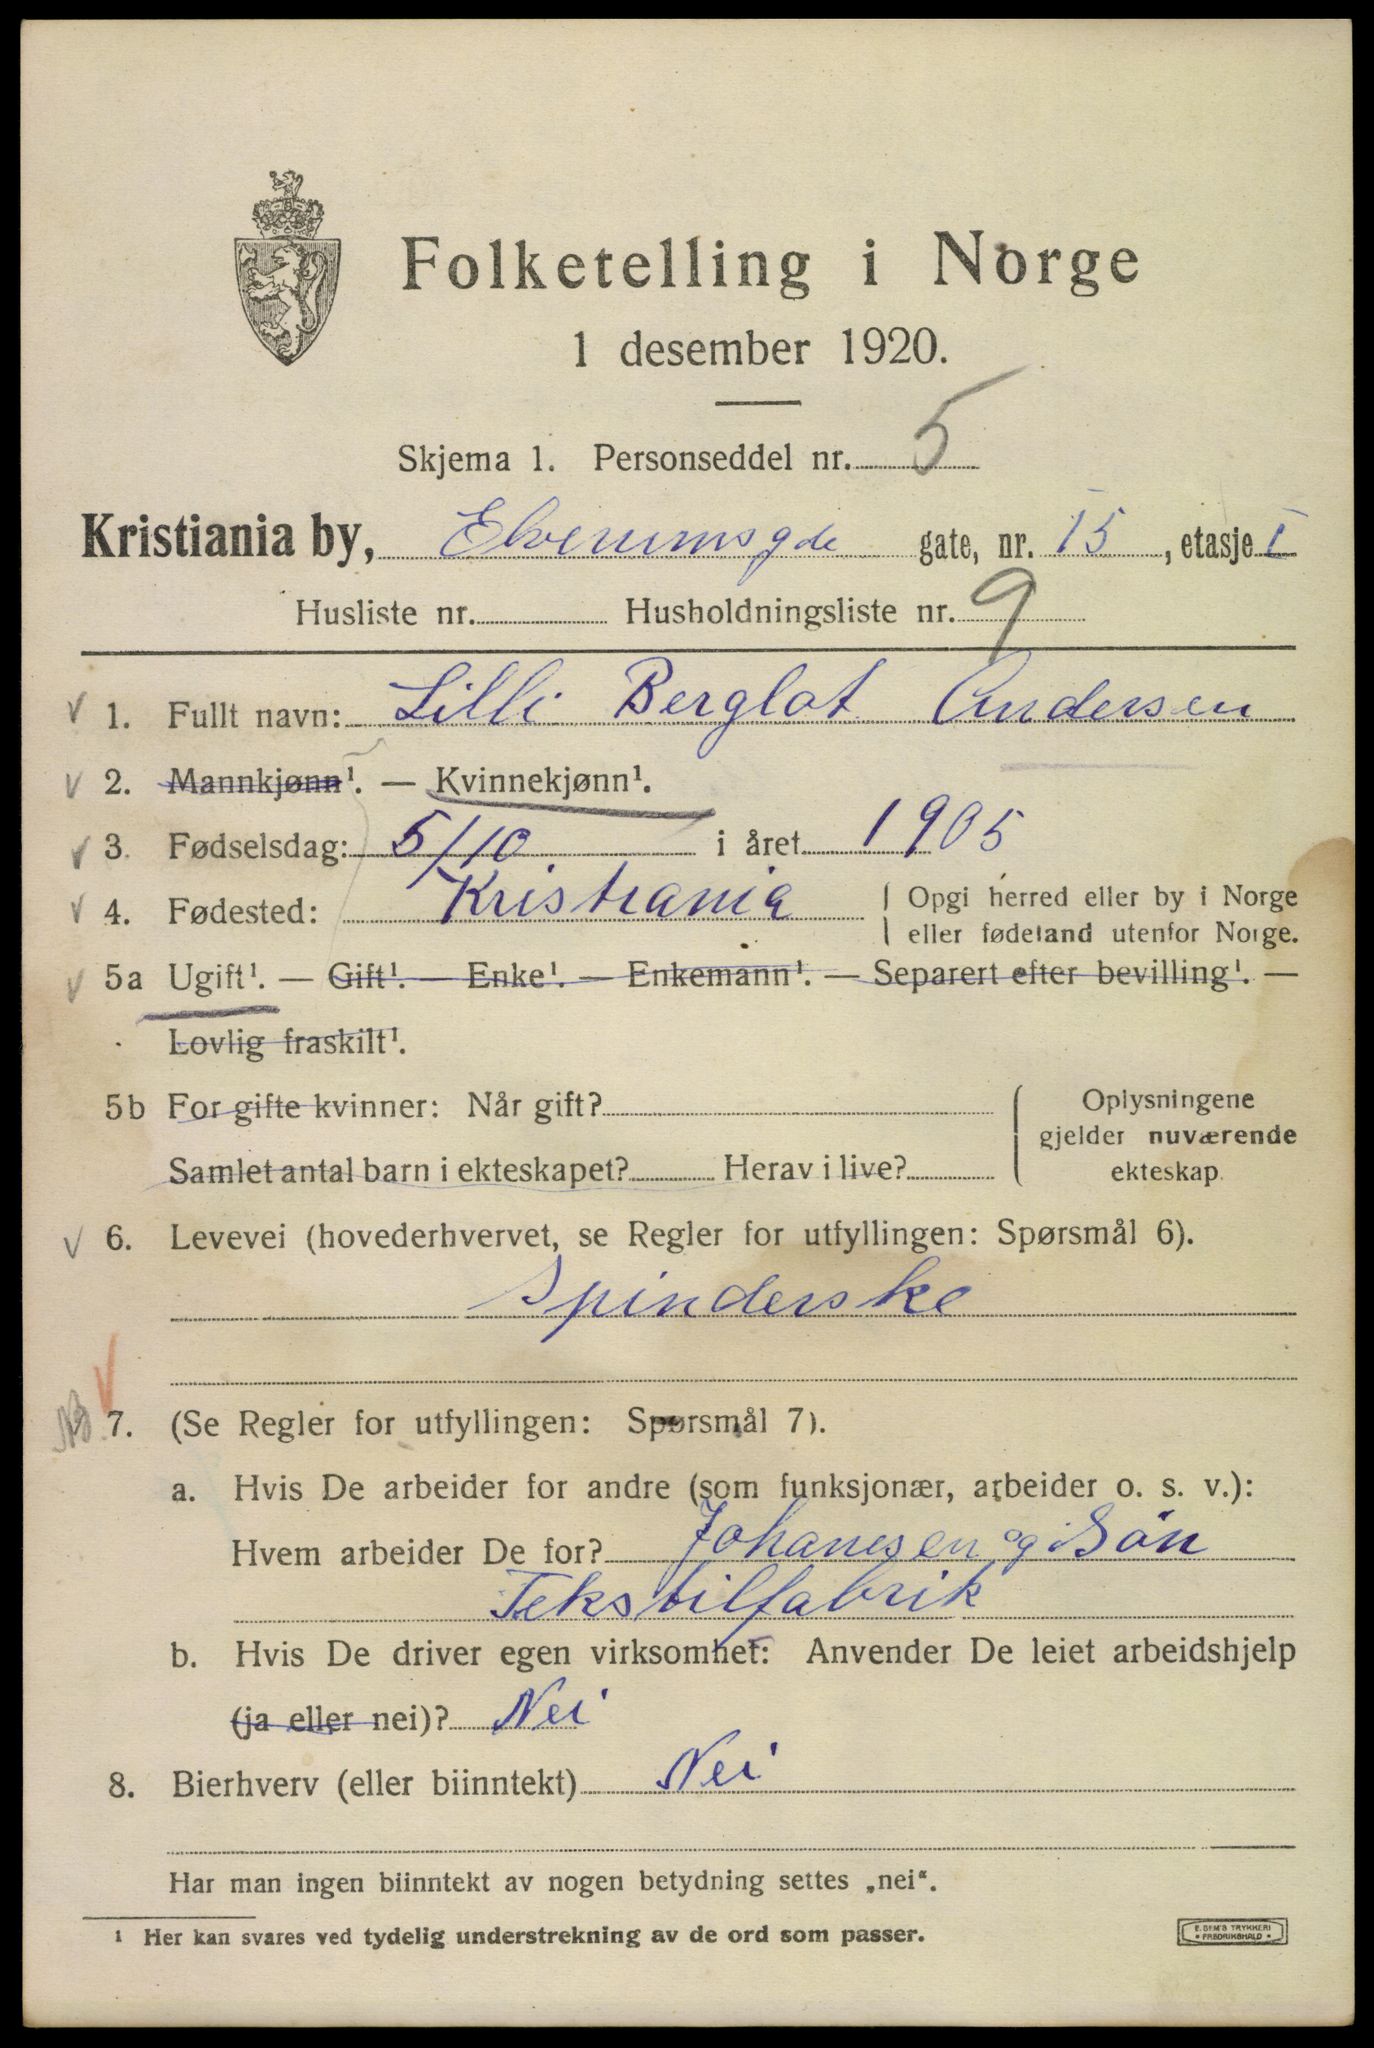 Folketelling i Norge
1 desember 1920.
Skjema 1. Personseddel nr. 5
Kristiania by, Elverumsgde gate, nr. 15, etasje I
Husliste nr. Husholdningsliste nr. 9
1. Fullt navn: Lilli Berglot Andersen
2. Mannkjønn¹. — Kvinnekjønn¹.
3. Fødselsdag: 5/10 i året 1905
4. Fødested: Kristiania { Opgi herred eller by i Norge
eller fødeland utenfor Norge.
5a Ugift¹. — Gift¹. — Enke¹. — Enkemann¹. — Separert efter bevilling¹. —
Lovlig fraskilt¹.
5b For gifte kvinner: Når gift? { Oplysningene
gjelder nuværende
Samlet antal barn i ekteskapet? Herav i live? ekteskap.
6. Levevei (hovederhvervet, se Regler for utfyllingen: Spørsmål 6).
Spinderske
NB 7. (Se Regler for utfyllingen: Spørsmål 7).
a. Hvis De arbeider for andre (som funksjonær, arbeider o. s. v.):
Hvem arbeider De for? Johanesen og Søn
Tekstilfabrik
b. Hvis De driver egen virksomhet: Anvender De leiet arbeidshjelp
(ja eller nei)? Nei
8. Bierhverv (eller biinntekt) Nei
Har man ingen biinntekt av nogen betydning settes „nei“.
¹ Her kan svares ved tydelig understrekning av de ord som passer.
E. SEM'S TRYKKERI
• FREDRIKSHALD •